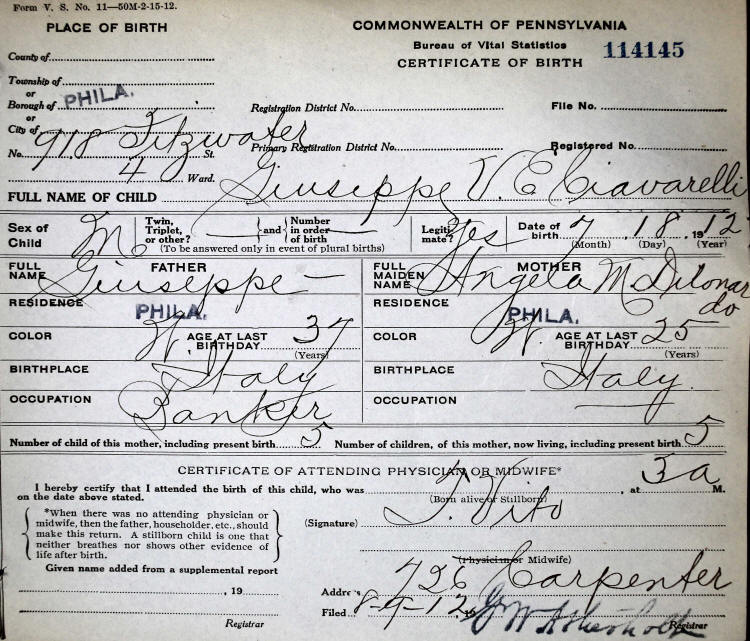 Form V. S. No. 11—50M-2-15-12.
PLACE OF BIRTH
COMMONWEALTH OF PENNSYLVANIA
Bureau of Vital Statistics
114145
CERTIFICATE OF BIRTH
County of
Township of
or
Borough of PHILA.
or
City of
Registration District No.
File No.
No. 918 Fitzwater St.
Primary Registration District No.
Registered No.
4 Ward.
FULL NAME OF CHILD Giuseppe V. E. Ciavarelli
Sex of Child M
Twin, Triplet, or other?
and
Number in order of birth
(To be answered only in event of plural births)
Legitimate? Yes
Date of birth 7, 18, 1912
(Month) (Day) (Year)
FATHER
FULL NAME Giuseppe —
MOTHER
FULL MAIDEN NAME Angela M Dilonardo
RESIDENCE PHILA.
RESIDENCE PHILA.
COLOR W. AGE AT LAST BIRTHDAY 37
(Years)
COLOR W. AGE AT LAST BIRTHDAY 25
(Years)
BIRTHPLACE Italy
BIRTHPLACE Italy.
OCCUPATION Banker
OCCUPATION —
Number of child of this mother, including present birth 5
Number of children, of this mother, now living, including present birth 5
CERTIFICATE OF ATTENDING PHYSICIAN OR MIDWIFE*
I hereby certify that I attended the birth of this child, who was , at 3 a M.
on the date above stated.
(Born alive or Stillborn)
*When there was no attending physician or
midwife, then the father, householder, etc., should
make this return. A stillborn child is one that
neither breathes nor shows other evidence of
life after birth.
(Signature) T. Vito
(Physician or Midwife)
Given name added from a supplemental report
, 19
Registrar
Address 726 Carpenter
Filed 8-9-12, 19
Registrar